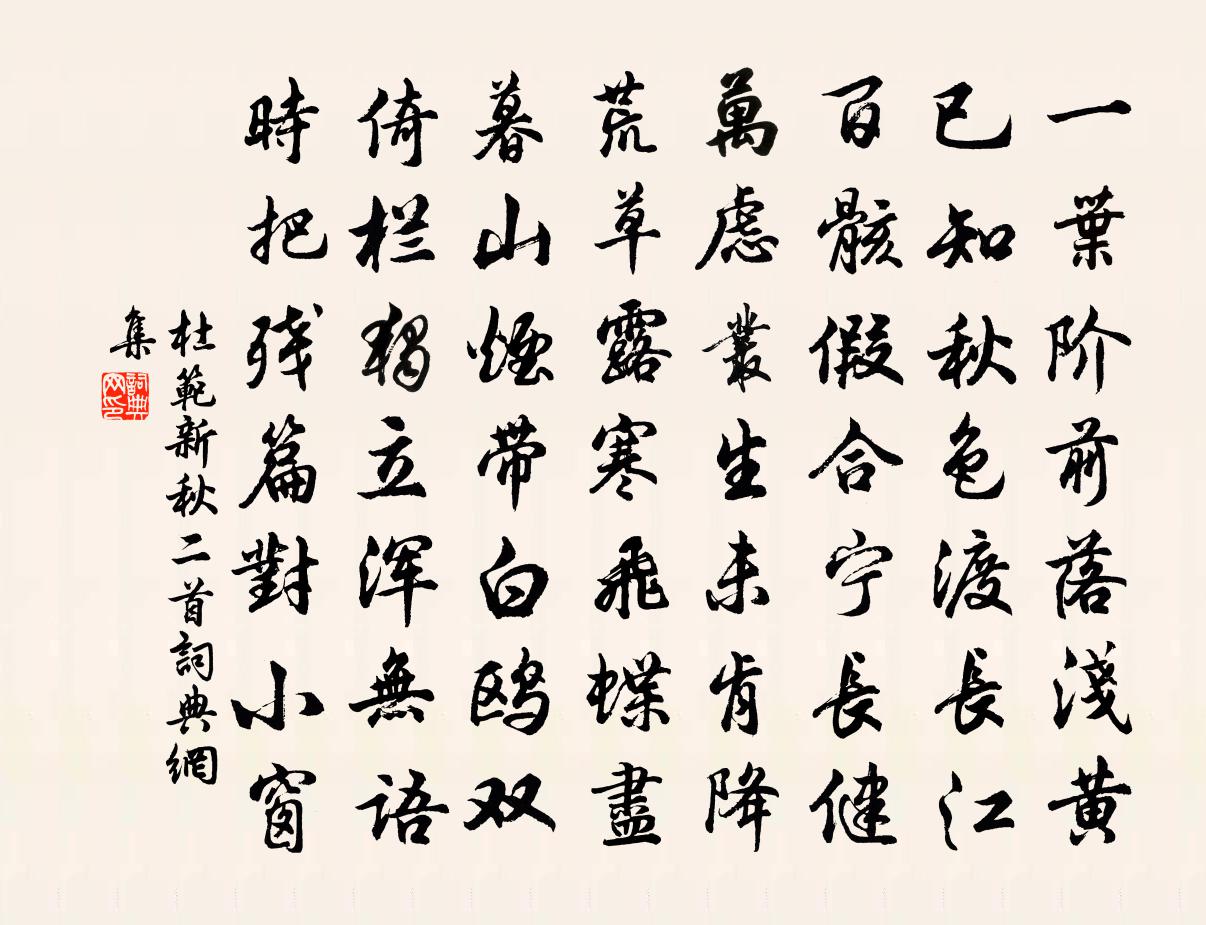 一葉阶前落淺黄
已知秋色渡長江
百骸假合宁長健
萬慮叢生未肯降
荒草露寒飛蝶盡
暮山煙带白鸥双
倚栏獨立浑無語
時把残篇對小窗
杜範新秋二首詞典網
集
詞典网印